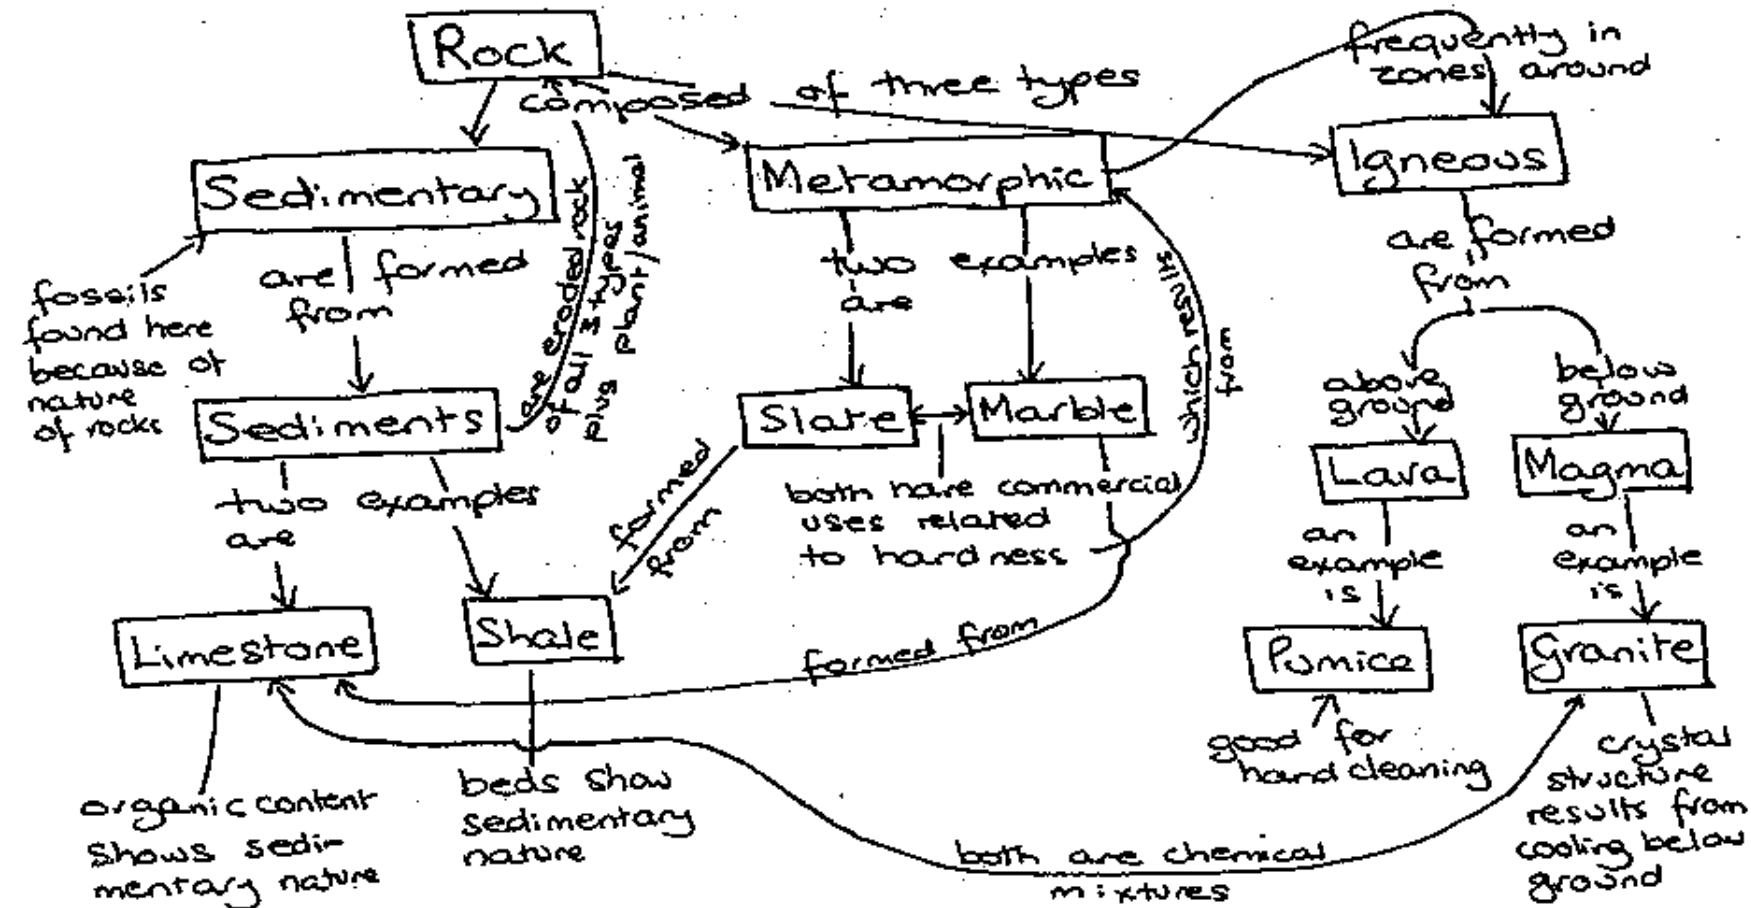 Rock
composed of three types
frequently in
zones around
Sedimentary
Metamorphic
Igneous
are formed
from
fossils
found here
because of
nature
of rocks
are eroded rock
of all 3 types
plus plant/animal
two examples
are
which results
from
are formed
from
Sediments
Slate
Marble
above
ground
below
ground
Lava
Magma
two examples
are
formed
from
both have commercial
uses related
to hardness
an
example
is
an
example
is
Limestone
Shale
formed from
Pumice
Granite
organic content
shows sedi-
mentary nature
beds show
sedimentary
nature
good for
hand cleaning
crystal
structure
results from
cooling below
ground
both are chemical
mixtures